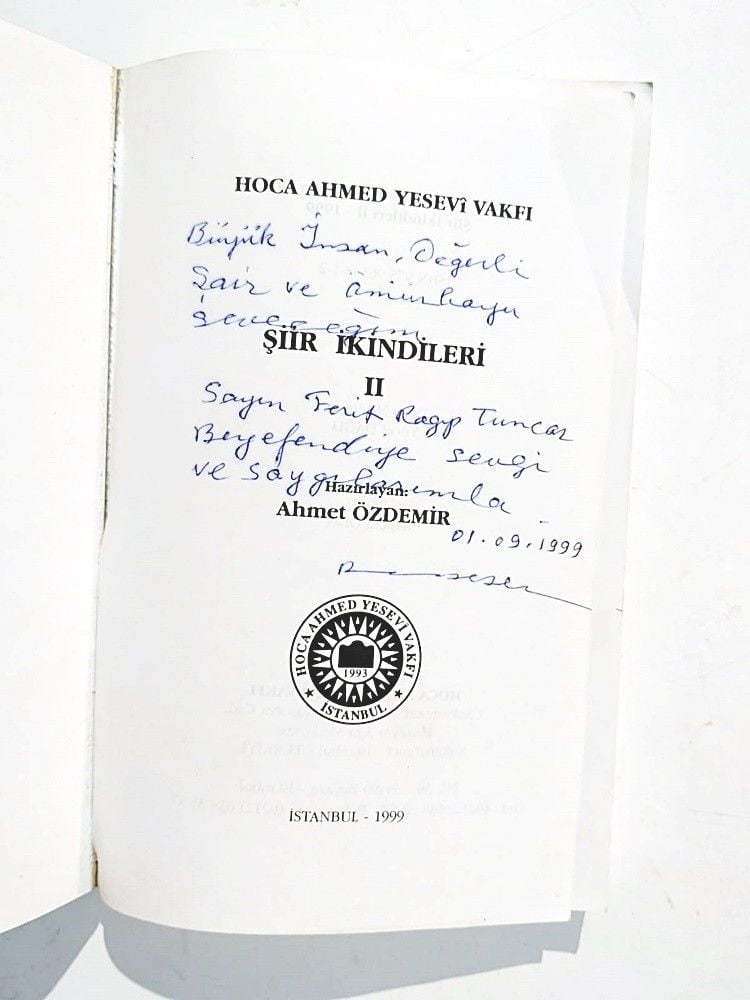 HOCA AHMED YESEVî VAKFI
Büyük İnsan, Değerli
Şair ve ömürboyu
seveceğim
ŞİİR İKİNDİLERİ
II
Sayın Ferit Ragıp Tuncor
Beyefendiye sevgi
ve saygılarımla
Hazırlayan:
Ahmet ÖZDEMİR
01.09.1999
HOCA AHMED YESEVİ VAKFI
1993
★ İSTANBUL ★
İSTANBUL - 1999